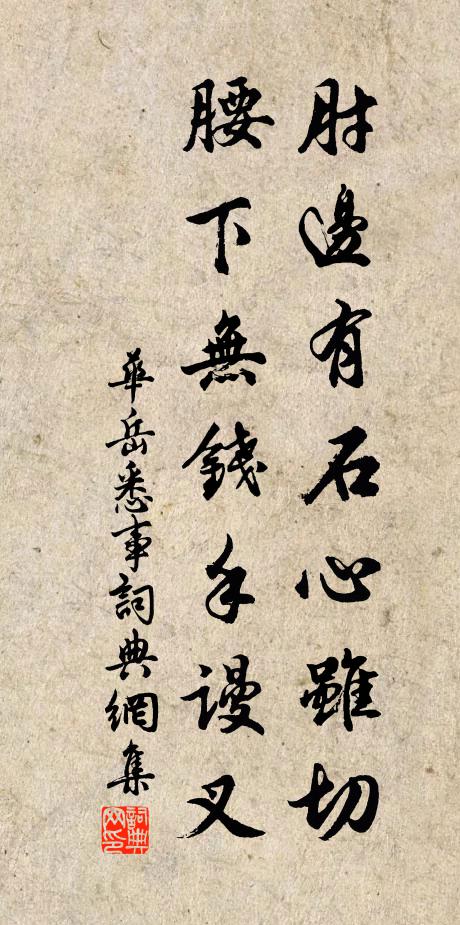 肘邊有石心雖切
腰下無錢手謾叉
華岳悉事詞典網集
詞典網印